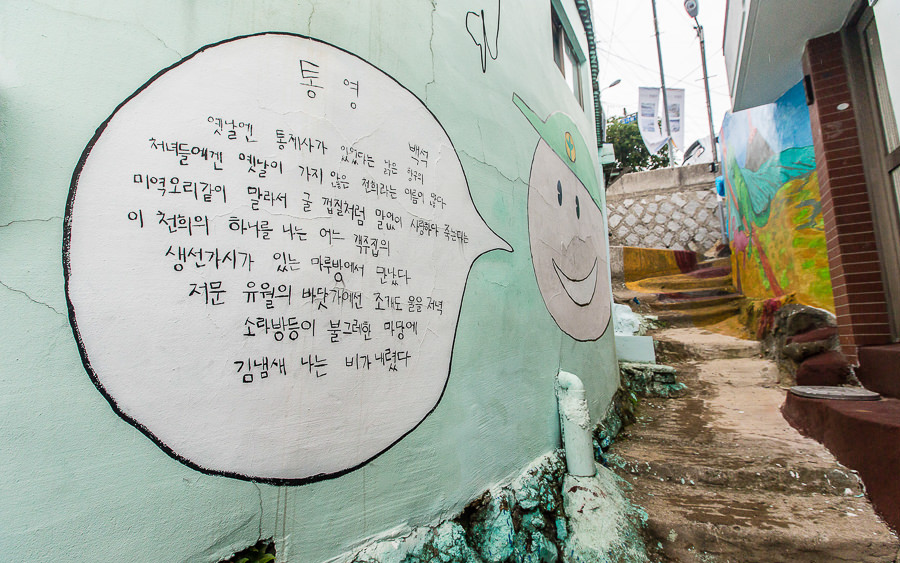 통영
백석
옛날엔 통제사가 있었다는 낡은 항구의
처녀들에겐 옛날이 가지 않은 천희라는 이름이 많다
미역오리같이 말라서 굴 껍질처럼 말없이 사랑하다 죽는다는
이 천희의 하나를 나는 어느 객주집의
생선가시가 있는 마루방에서 만났다
저문 유월의 바닷가에선 조개도 울을 저녁
소라방등이 불그레한 마당에
김냄새 나는 비가 내렸다